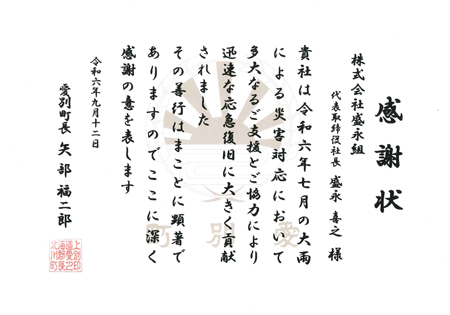 感謝状
株式会社盛永組
代表取締役社長 盛永 喜之 様
貴社は令和六年七月の大雨
による災害対応において
多大なるご支援とご協力により
迅速な応急復旧に大きく貢献
されました
その善行はまことに顕著で
ありますのでここに深く
感謝の意を表します
令和六年九月十二日
愛別町長 矢部福二郎
愛別町